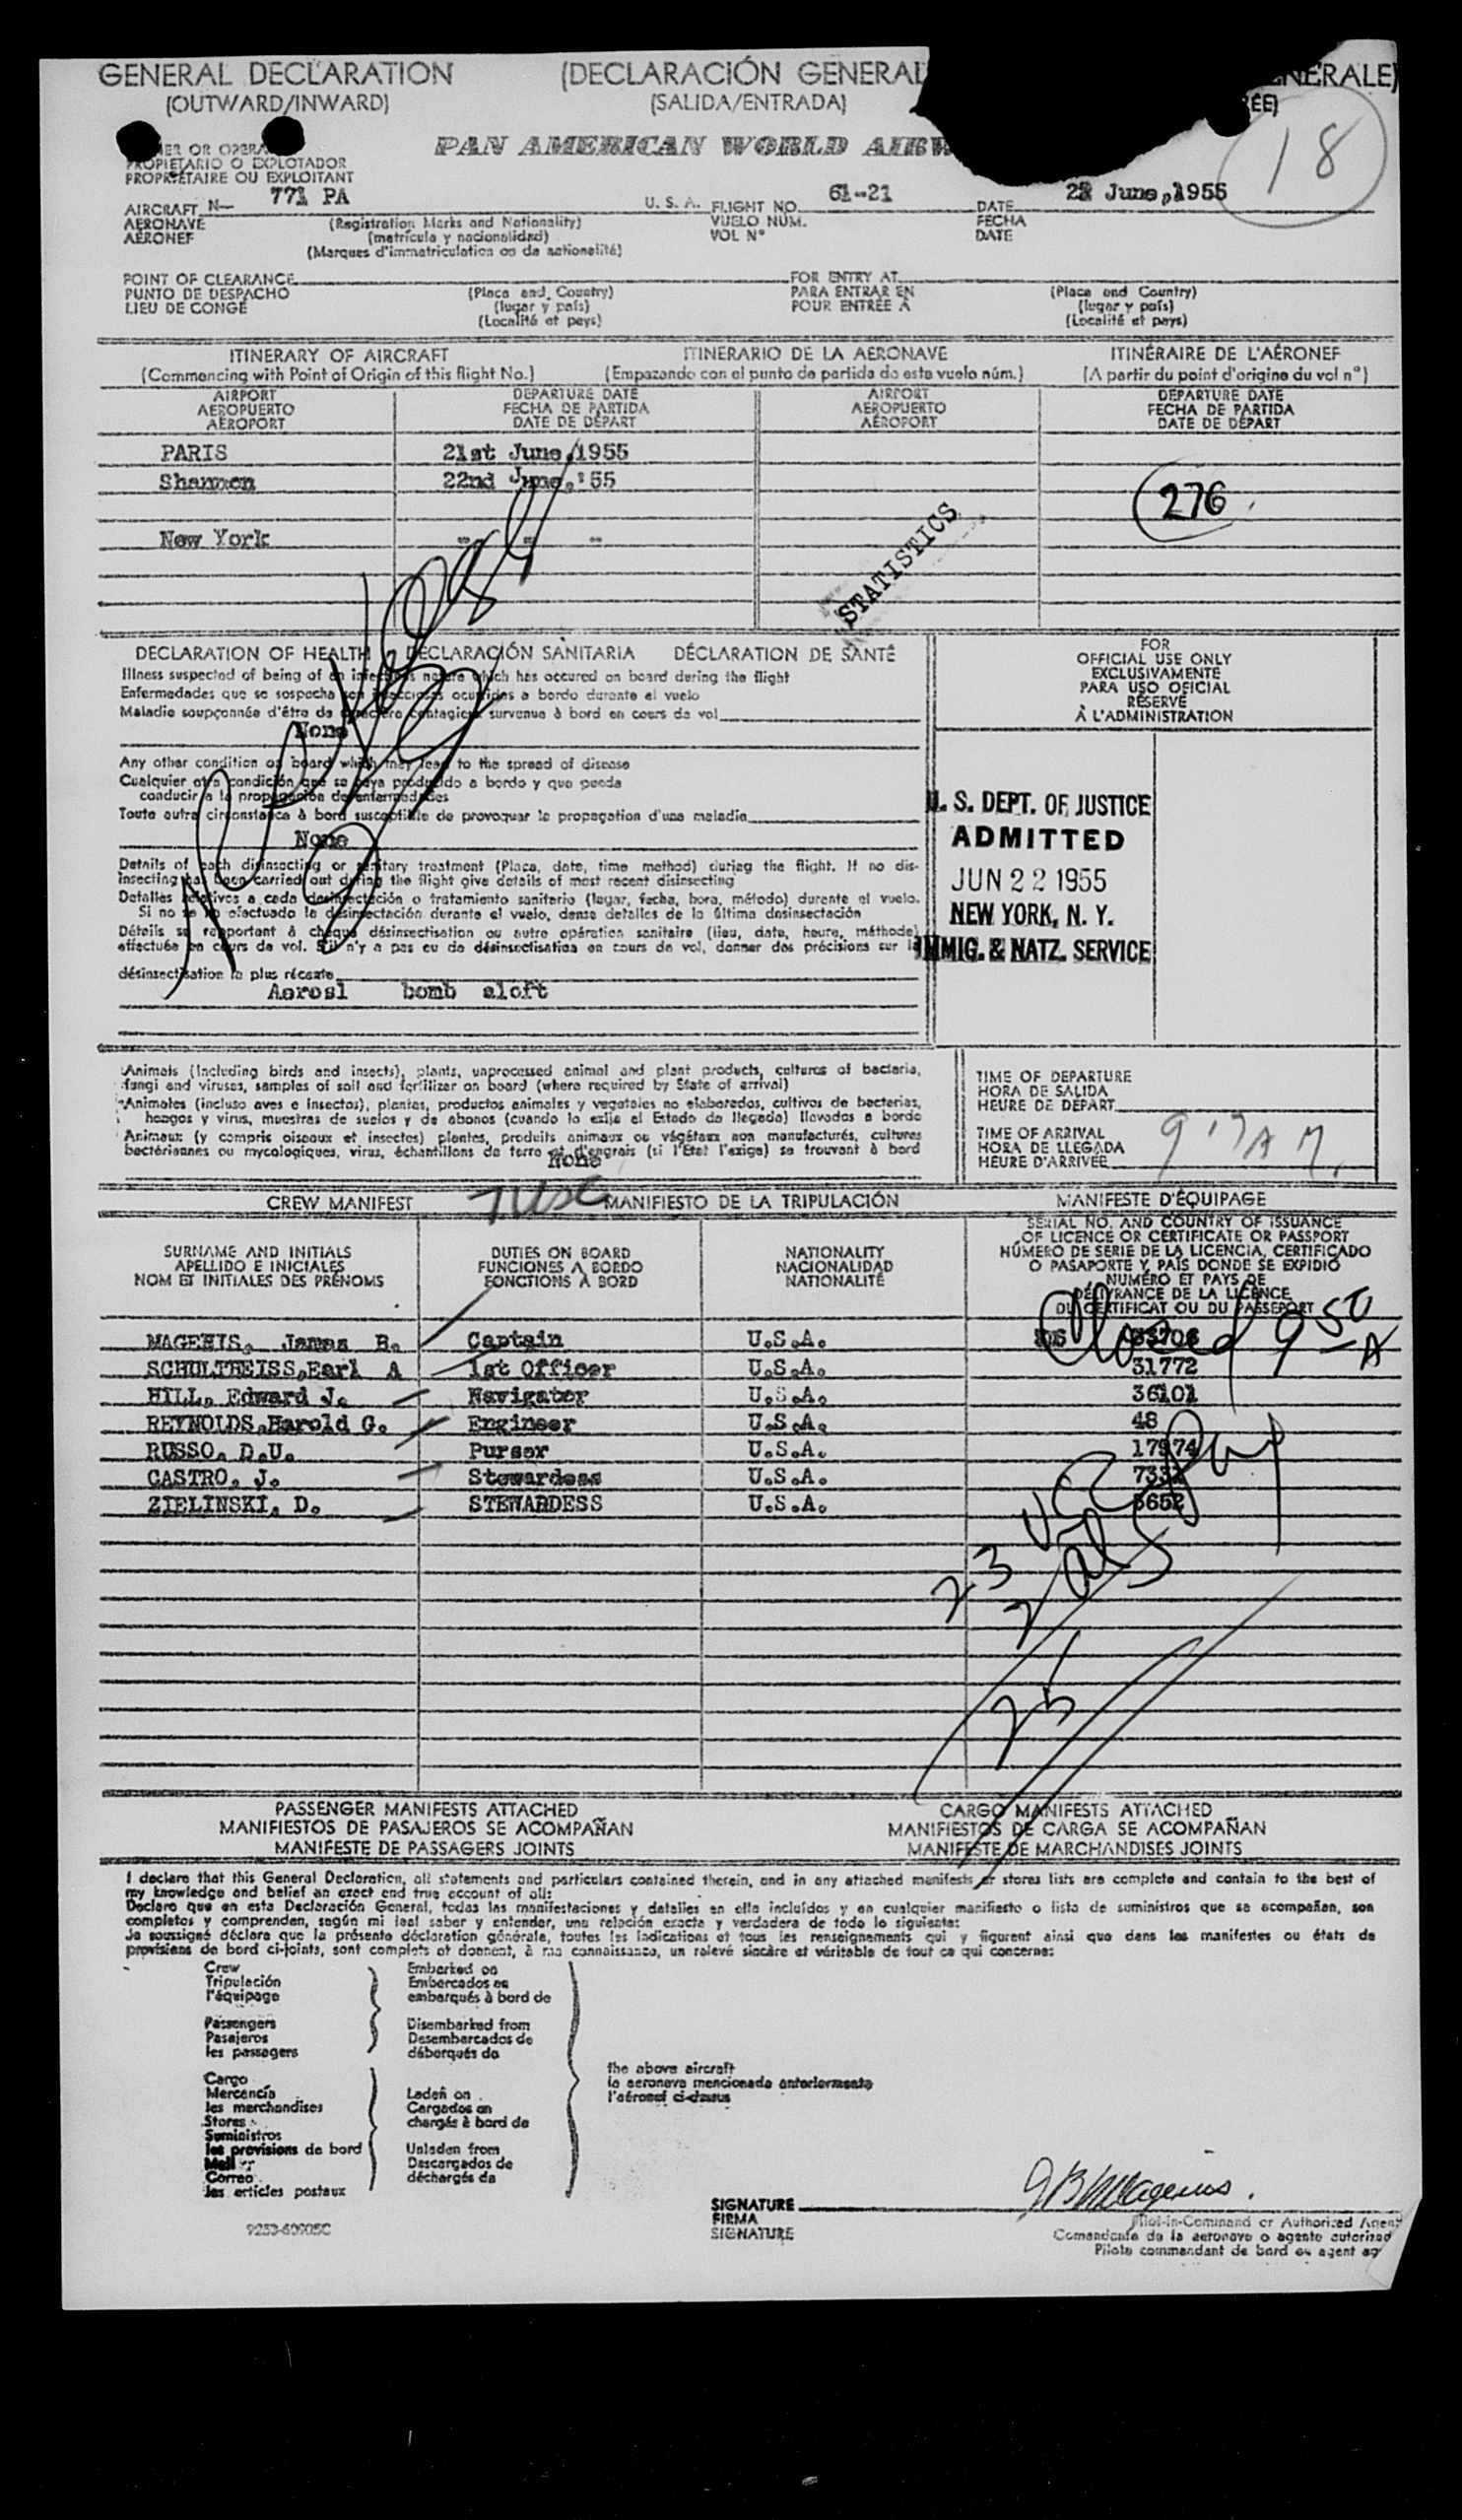 GENERAL DECLARATION (DECLARACIÓN GENERAL NERALE)
(OUTWARD/INWARD) (SALIDA/ENTRADA) ÉE)
18
PAN AMERICAN WORLD AIRW
PROPIETARIO O EXPLOTADOR
PROPRÉTAIRE OU EXPLOITANT
AIRCRAFT N— 771 PA U. S. A. FLIGHT NO. 61-21 DATE June, 1955
AERONAVE (Registration Marks and Nationality) VUELO NÚM. FECHA
AÉRONEF (matrícula y nacionalidad) VOL N° DATE
(Marques d'immatriculation ou de nationalité)
POINT OF CLEARANCE FOR ENTRY AT
PUNTO DE DESPACHO (Place and Country) PARA ENTRAR EN (Place and Country)
LIEU DE CONGÉ (lugar y país) POUR ENTRÉE À (lugar y país)
(Localité et pays) (Localité et pays)
ITINERARY OF AIRCRAFT ITINERARIO DE LA AERONAVE ITINÉRAIRE DE L'AÉRONEF
(Commencing with Point of Origin of this flight No.) (Empazando con el punto de partida de este vuelo núm.) (A partir du point d'origine du vol n°)
AIRPORT DEPARTURE DATE AIRPORT DEPARTURE DATE
AEROPUERTO FECHA DE PARTIDA AEROPUERTO FECHA DE PARTIDA
AÉROPORT DATE DE DÉPART AÉROPORT DATE DE DÉPART
PARIS 21st June, 1955
Shannon 22nd June, '55
276
New York - - -
STATISTICS
DECLARATION OF HEALTH DECLARACIÓN SANITARIA DÉCLARATION DE SANTÉ
Illness suspected of being of an infectious nature which has occured on board during the flight
Enfermedades que se sospecha son infecciosas ocurridas a bordo durante el vuelo
Maladie soupçonnée d'être de caractère contagieux survenue à bord en cours de vol
None
Any other condition on board which may lead to the spread of disease
Cualquier otra condición que se haya producido a bordo y que pueda
conducir a la propagación de enfermedades
Toute autre circonstance à bord susceptible de provoquer la propagation d'une maladie
None
Details of each disinsecting or sanitary treatment (Place, date, time method) during the flight. If no dis-
insecting has been carried out during the flight give details of most recent disinsecting
Detalles relativos a cada desinsectación o tratamiento sanitario (lugar, fecha, hora, método) durante el vuelo.
Si no se ha efectuado la desinsectación durante el vuelo, dense detalles de la última desinsectación
Détails se rapportant à chaque désinsectisation ou autre opération sanitaire (lieu, date, heure, méthode)
effectuée en cours de vol. S'il n'y a pas eu de désinsectisation en cours de vol, donner des précisions sur la
désinsectisation la plus récente
Aerosl bomb aloft
FOR
OFFICIAL USE ONLY
EXCLUSIVAMENTE
PARA USO OFICIAL
RÉSERVÉ
À L'ADMINISTRATION
U. S. DEPT. OF JUSTICE
ADMITTED
JUN 22 1955
NEW YORK, N. Y.
IMMIG. & NATZ. SERVICE
Animals (Including birds and insects), plants, unprocessed animal and plant products, cultures of bacteria,
fungi and viruses, samples of soil and fertilizer on board (where required by State of arrival)
Animales (incluso aves e insectos), plantas, productos animales y vegetales no elaborados, cultivos de bacterias,
hongos y virus, muestras de suelos y de abonos (cuando lo exija el Estado de llegada) llevados a bordo
Animaux (y compris oiseaux et insectes) plantes, produits animaux ou végétaux non manufacturés, cultures
bactériennes ou mycologiques, virus, échantillons de terre et d'engrais (si l'État l'exige) se trouvant à bord
None
TIME OF DEPARTURE
HORA DE SALIDA
HEURE DE DÉPART
TIME OF ARRIVAL
HORA DE LLEGADA
HEURE D'ARRIVÉE
CREW MANIFEST MANIFIESTO DE LA TRIPULACIÓN MANIFESTE D'ÉQUIPAGE
SURNAME AND INITIALS DUTIES ON BOARD NATIONALITY
APELLIDO E INICIALES FUNCIONES A BORDO NACIONALIDAD
NOM ET INITIALES DES PRÉNOMS FONCTIONS À BORD NATIONALITÉ
SERIAL NO. AND COUNTRY OF ISSUANCE
OF LICENCE OR CERTIFICATE OR PASSPORT
NÚMERO DE SERIE DE LA LICENCIA, CERTIFICADO
O PASAPORTE Y PAÍS DONDE SE EXPIDIÓ
NUMÉRO ET PAYS DE
DÉLIVRANCE DE LA LICENCE
DU CERTIFICAT OU DU PASSEPORT
Closed 9 50 A
MAGENIS, James B. Captain U.S.A.
SCHULTHEISS, Earl A 1st Officer U.S.A. 31772
HILL, Edward J. Navigator U.S.A. 36101
REYNOLDS, Harold G. Engineer U.S.A. 48
RUSSO, D.U. Purser U.S.A. 17974
CASTRO, J. Stewardess U.S.A.
ZIELINSKI, D. STEWARDESS U.S.A.
23 USC
2 als
25
PASSENGER MANIFESTS ATTACHED CARGO MANIFESTS ATTACHED
MANIFIESTOS DE PASAJEROS SE ACOMPAÑAN MANIFIESTOS DE CARGA SE ACOMPAÑAN
MANIFESTE DE PASSAGERS JOINTS MANIFESTE DE MARCHANDISES JOINTS
I declare that this General Declaration, all statements and particulars contained therein, and in any attached manifests or stores lists are complete and contain to the best of
my knowledge and belief an exact and true account of all:
Declaro que en esta Declaración General, todas las manifestaciones y detalles en ella incluídos y en cualquier manifiesto o lista de suministros que se acompañan, son
completos y comprenden, según mi leal saber y entender, una relación exacta y verdadera de todo lo siguiente:
Je soussigné déclare que la présente déclaration générale, toutes les indications et tous les renseignements qui y figurent ainsi que dans les manifestes ou états de
provisions de bord ci-joints, sont complets et donnent, à ma connaissance, un relevé sincère et véritable de tout ce qui concerne:
Crew Embarked on
Tripulación Embarcados en
l'équipage embarqués à bord de
Passengers Disembarked from
Pasajeros Desembarcados de
les passagers débarqués de
the above aircraft
Cargo la aeronave mencionada anteriormente
Mercancía Laden on l'aéronef ci-dessus
les merchandises Cargados en
Stores chargés à bord de
Suministros
les provisions de bord Unladen from
Mail Descargados de
Correo déchargés de
les articles postaux
JB Magenis.
SIGNATURE Pilot-in-Command or Authorized Agent
FIRMA Comandante de la aeronave o agente autorizad
SIGNATURE Pilote commandant de bord ou agent ag
9253-60905C